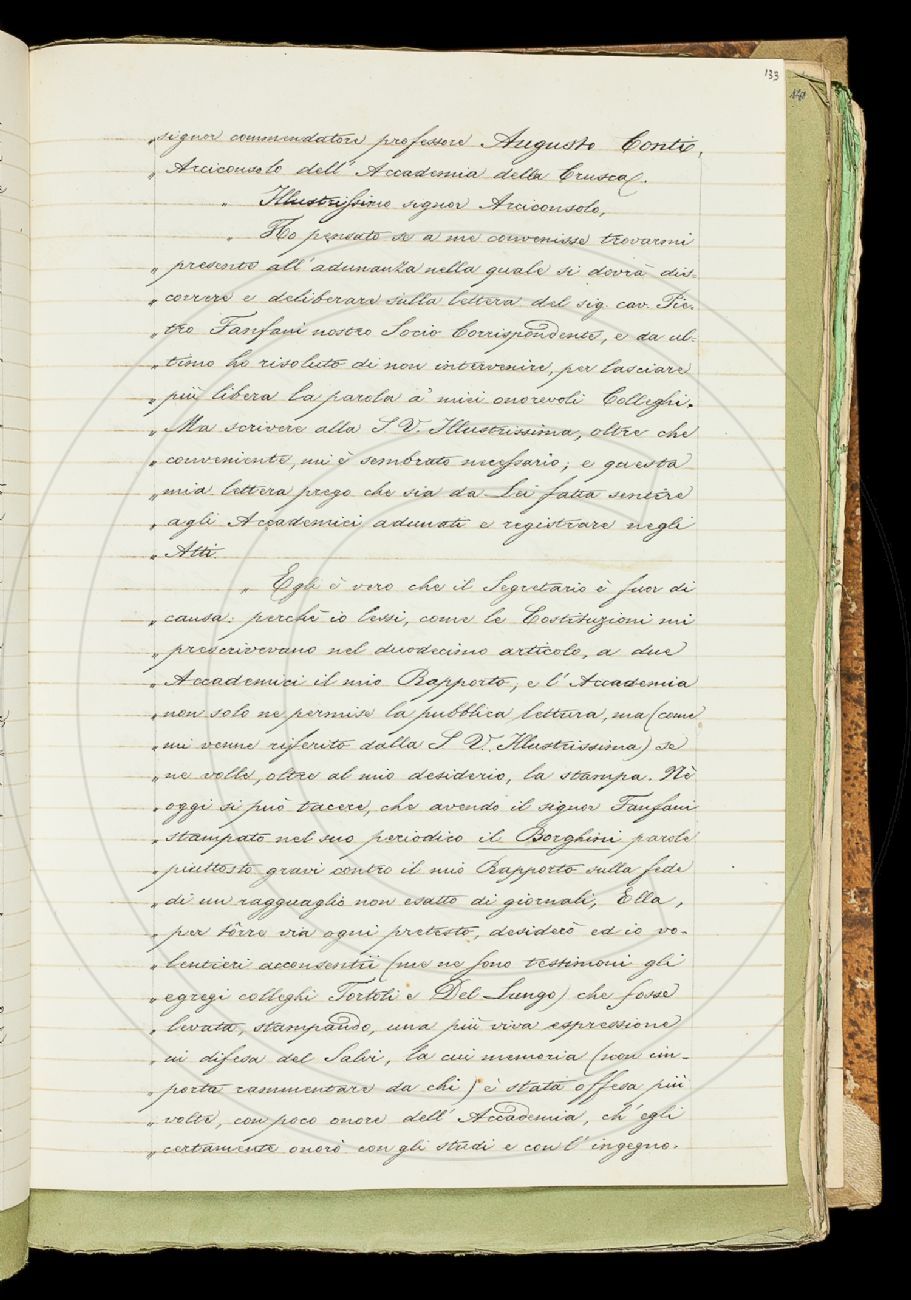 133
„ signor commendatore professore Augusto Conti,
„ Arciconsolo dell' Accademia della Crusca.
„ Illustrissimo signor Arciconsolo,
„ Ho pensato se a me convenisse trovarmi
„ presente all' adunanza nella quale si dovrà dis-
„ correre e deliberare sulla lettera del sig. cav. Pie-
„ tro Fanfani nostro Socio Corrispondente, e da ul-
„ timo ho risoluto di non intervenire, per lasciare
„ più libera la parola a' miei onorevoli Colleghi.
„ Ma scrivere alla S. V. Illustrissima, oltre che
„ conveniente, mi è sembrato necessario; e questa
„ mia lettera prego che sia da Lei fatta sentire
„ agli Accademici adunati e registrare negli
„ Atti.
„ Egli è vero che il Segretario è fuor di
„ causa: perchè io lessi, come le Costituzioni mi
„ prescrivevano nel duodecimo articolo, a due
„ Accademici il mio Rapporto, e l' Accademia
„ non solo ne permise la pubblica lettura, ma (come
„ mi venne riferito dalla S. V. Illustrissima) se
„ ne volle, oltre al mio desiderio, la stampa. Nè
„ oggi si può tacere, che avendo il signor Fanfani
„ stampato nel suo periodico il Borghini parole
„ piuttosto gravi contro il mio Rapporto sulla fede
„ di un ragguaglio non esatto di giornali, Ella,
„ per tôrre via ogni pretesto, desiderò ed io vo-
„ lentieri acconsentii (me ne sono testimoni gli
„ egregi colleghi Tortoli e Del Lungo) che fosse
„ levata, stampando, una più viva espressione
„ in difesa del Salvi, la cui memoria (non im-
„ porta rammentare da chi) è stata offesa più
„ volte, con poco onore dell' Accademia, ch' egli
„ certamente onorò con gli studi e con l' ingegno.